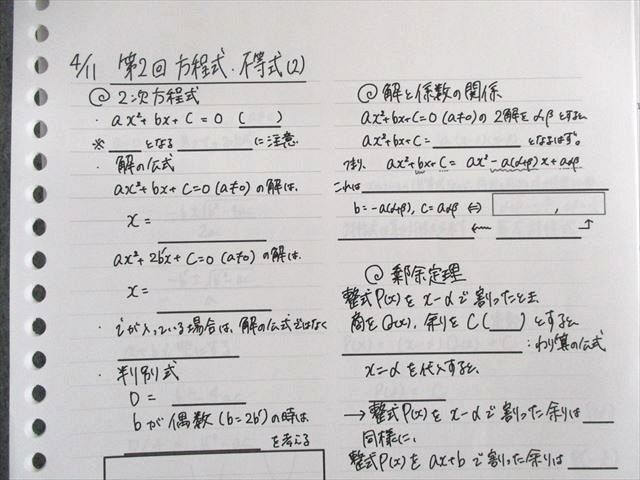 4/11 第2回 方程式・不等式(2)
@ 2次方程式
・ ax²+bx+c=0 (　　)
※ ＿＿となる＿＿＿＿に注意
・ 解の公式
ax²+bx+c=0 (a≠0) の解は、
x=
ax²+2b'x+c=0 (a≠0) の解は、
x=
・ iが入っている場合は、解の公式ではなく
・ 判別式
D=
bが偶数 (b=2b') の時は
＿＿を考える
@ 解と係数の関係
ax²+bx+c=0 (a≠0) の2解をα,βとすると
ax²+bx+c=＿＿＿＿となるはず。
つまり、 ax²+bx+c= ax²-a(α+β)x+aαβ
これは
b=-a(α+β), c=aαβ ⇔ 　　,
@ 剰除定理
整式P(x)をx-αで割ったとき
商をQ(x), 余りをC(＿＿)とすると
＿＿＿＿:わり算の公式
x=αを代入すると、
→整式P(x)をx-αで割った余りは
同様に、
整式P(x)をax+bで割った余りは